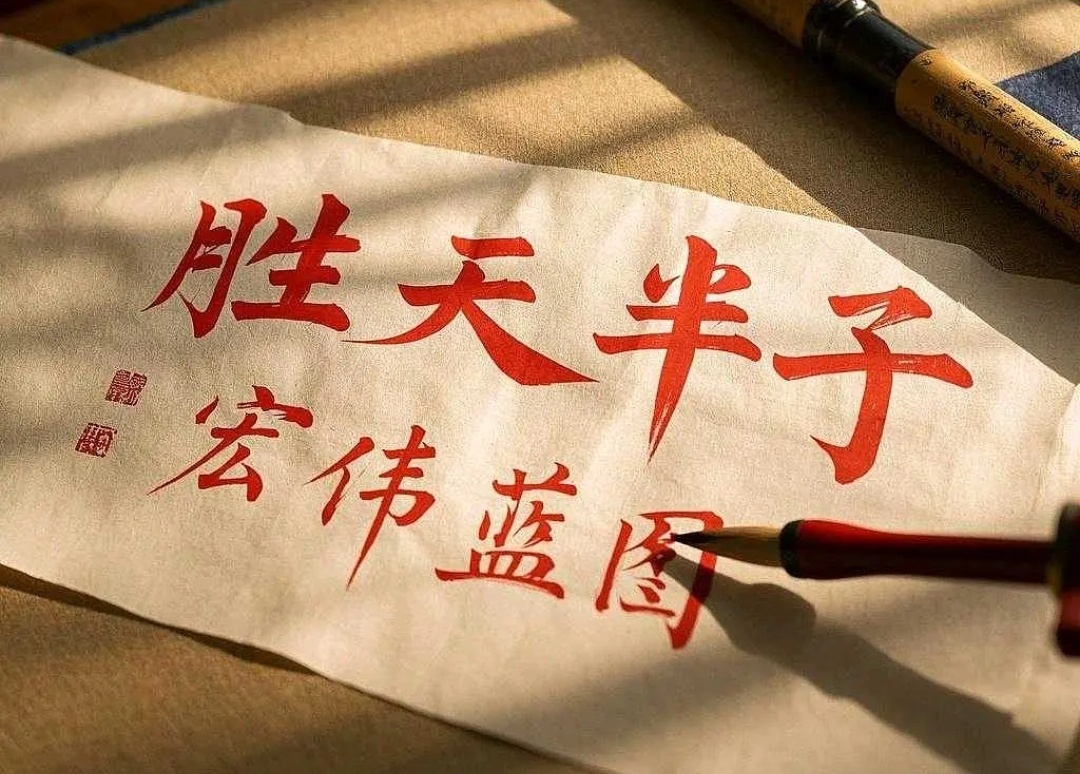 胜天半子
宏伟蓝图